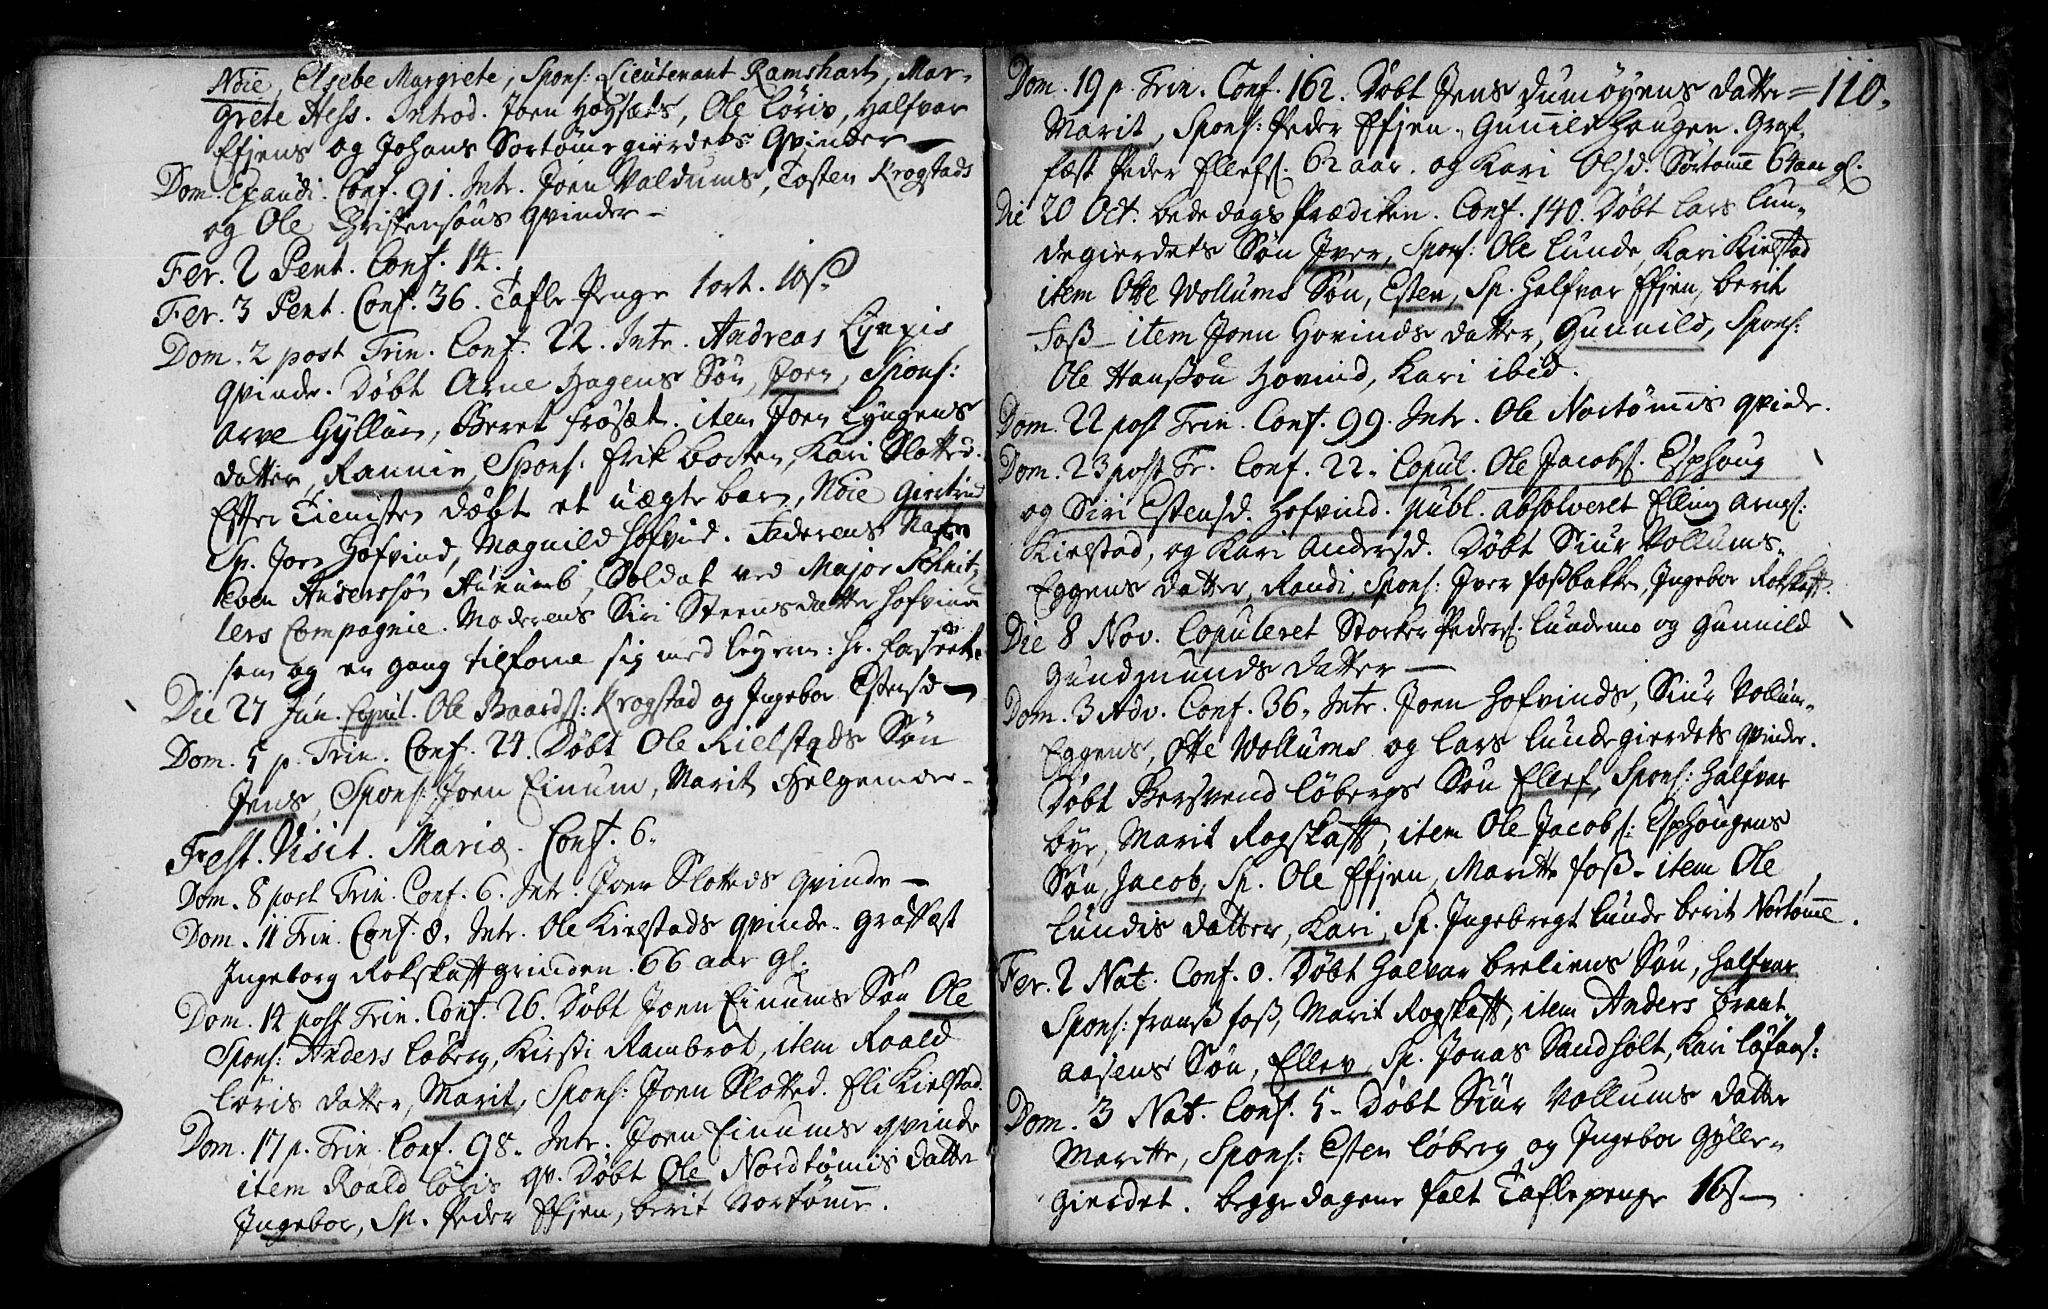 Nõie, Elsebe Margrete, Spons: Lieutenant Ramshart, Mar-
grete Hess. Introd. Joen Høysæts, Ole Løris, Halfvar
Efjens og Johans Sortømegierdets Qvinder —
Dom. Exaudi. Conf. 91. Intr. Joen Valdums, Tosten Krogstads
og Ole Christensøns qvinder —
Fer. 2 Pent. Conf. 14.
Fer. 3 Pent. Conf. 36. Tafle Penge 1 ort. 10 s.
Dom. 2 post Trin. Conf. 22. Intr. Andreas Lynxis
qvinde. Døbt Arne Hagens Søn, Joen, Spons:
Arve Gyllan, Beret Frøsæt. item Joen Lyngens
datter, Rannie, Spons: Erik Borten, Kari Slotted.
Efter Tienisten døbt et uægte barn, Nõie Giertrud
Sp. Joen Hofvind, Magnild Hofvid. Faderens Nafn
Even Andersøn Aunumb, Soldat ved Major Schnit-
lers Compagnie. Moderens Siri Steensdatter Hofvind
som og en gang tilforne sig med leyerm: hr. forseet.
Die 27 Jun. Copul. Ole Baards: Krogstad og Ingebor Estensd —
Dom. 5 p. Trin. Conf. 24. Døbt Ole Kielstads Søn
Jens, Spons: Joen Einum, Marit Helgemoe —
Fest. Visit. Mariæ. Conf. 6.
Dom. 8 post Trin. Conf. 6. Intr. Joen Slotteds qvinde —
Dom. 11 Trin. Conf. 8. Intr. Ole Kielstads qvinde. Graffæst
Ingeborg Rokskaftgrinden. 66 aar gl.
Dom. 14 post Trin. Conf. 26. Døbt Joen Einums Søn Ole
Spons: Anders Løberg, Kirsti Rambrot, item Roald
Løris datter, Marit, Spons: Joen Slotted. Eli Kielstad.
Dom. 17 p. Trin. Conf. 98. Intr. Joen Einums qvinde
item Roald Løris qv. Døbt Ole Nordtømis datter
Ingebor, Sp. Peder Efjen, berit Nortømme.
Dom. 19 p. Trin. Conf. 162. Døbt Jens Dumøyens datter = 110.
Marit, Spons: Peder Efjen. Gunnild Haugen. Graf-
fæst Peder Ellefs. 62 aar. og Kari Olsd. Sørtømme 64 aar gl.
Die 20 Oct. bededags Prædiken. Conf. 140. Døbt Lars Lun-
degierdets Søn Iver, Spons: Ole Lunde, Kari Kielstad
item Otte Wollums Søn, Esten, Sp. Halfvar Efjen, berit
Foss — item Joen Hovinds datter, Gunnild, Spons:
Ole Hanssøn Hovind, Kari ibid.
Dom. 22 post Trin. Conf. 99. Intr. Ole Nortømis qvinde.
Dom. 23 post Tr. Conf. 22. Copul. Ole Jacobs. Esphoug
og Siri Estensd. Hofvind. publ. absolveret Elling Arns:
Kielstad, og Kari Andersd. Døbt Siur Vollums-
Eggens datter, Randi, Spons: Iver Fossbakke, Ingebor Rokskaft.
Die 8 Nov. Copuleret Storker Peders. Lundemo og Gunnild
Gundmunds datter —
Dom. 3 Adv. Conf. 36. Intr. Joen Hofvinds, Siur Vollum-
Eggens, Otte Wollums og Lars Lundegierdets qvinder.
Døbt Bersvend Løbergs Søn Ellef, Spons: Halfvar
bye, Marit Rogskaft, item Ole Jacobs: Esphougens
Søn, Jacob, Sp. Ole Efjen, Maritte Foss — item Ole
Lundis datter, Kari, Sp. Ingebregt Lunde berit Nortømme.
Fer. 2 Nat. Conf. 0. Døbt Halvar breliens Søn, Halfvar
Spons: Frans Foss, Marit Rogskaft, item Anders brant-
aasens Søn, Ellev, Sp. Jonas Sandholt, Kari Løfaas:
Dom. 3 Nat. Conf. 5 — Døbt Siur Vollums datter
Maritte, Spons: Esten Løberg og Ingebor Gylle-
gierdet. begge dagene falt Taflepenge 16 s —